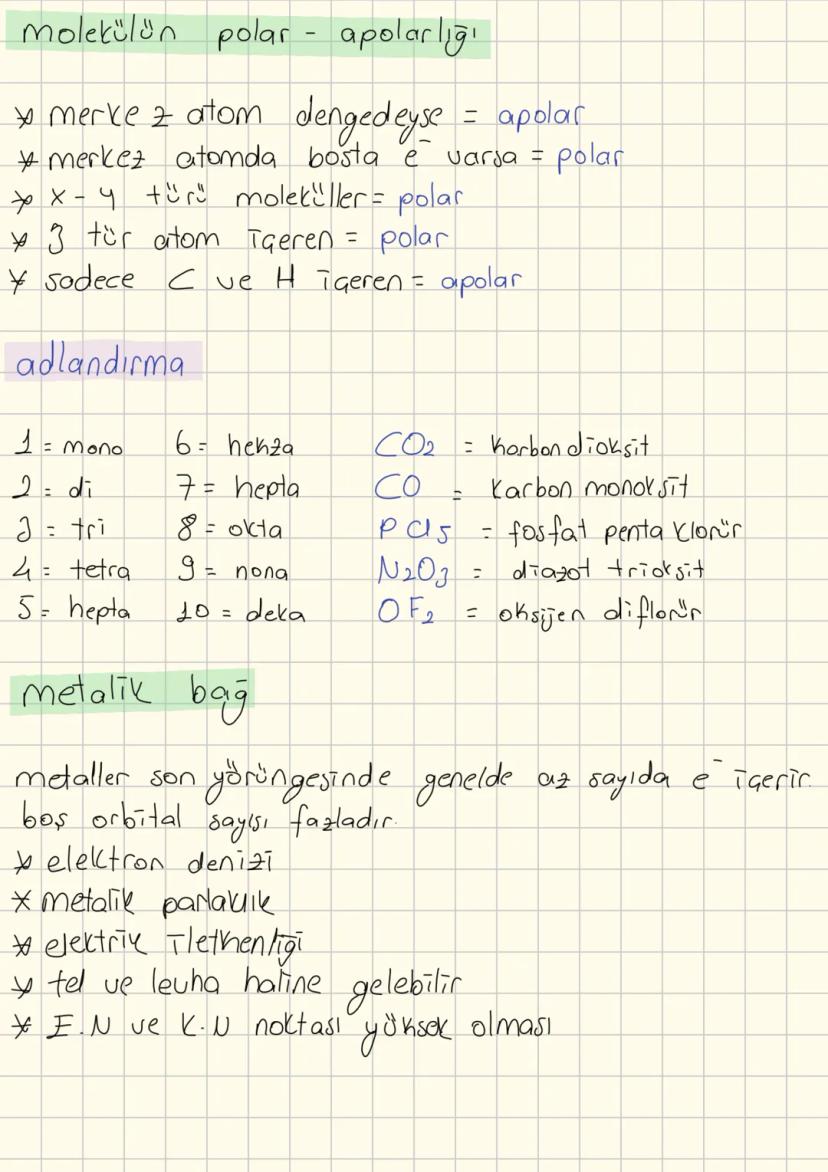 molekülün polar - apolarlığı
* merkez atom dengedeyse = apolar
* merkez atomda boşta e⁻ varsa = polar
* x - y türü moleküller = polar
* 3 tür atom içeren = polar
* sadece C ve H içeren = apolar
adlandırma
1 = mono 6 = hekza CO₂ = karbondioksit
2 = di 7 = hepta CO = karbon monoksit
3 = tri 8 = okta PCl5 = fosfat penta klorür
4 = tetra 9 = nona N₂O₃ = diazot trioksit
5 = hepta 10 = deka OF₂ = oksijen diflorür
metalik bağ
metaller son yörüngesinde genelde az sayıda e⁻ içerir.
boş orbital sayısı fazladır.
* elektron denizi
* metalik parlaklık
* elektrik iletkenliği
* tel ve levha haline gelebilir
* E.N ve K.N noktası yüksek olması